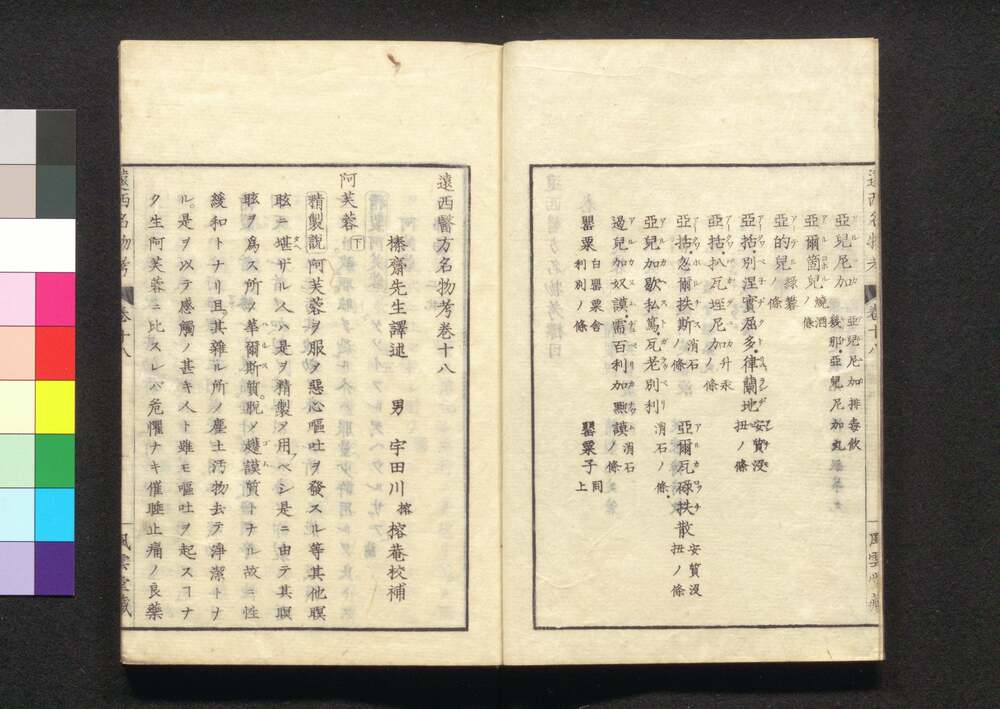 亞兒尼加 亞兒尼加排毒飲
亞爾箇兒 燒酒ノ條
亞的兒 綠礬ノ條
亞括別涅賓屈多律蘭地 安質没扭ノ條
亞括扒瓦垤尼加 升汞ノ條
亞括忽爾扶斯 消石ノ條 亞爾瓦碌扶散 安質没扭ノ條
亞兒加歇私篤瓦老別利 消石ノ條
邊兒加奴謨需百利加無謨 消石ノ條
罌粟 白罌粟舍利別ノ條 罌粟子 同上
風雲堂藏
遠西醫方名物考卷十八
榛齋先生譯述 男 宇田川榕 榕菴校補
阿芙蓉 下
精製說 阿芙蓉ヲ服ノ惡心嘔吐ヲ發スル等其他瞑
眩ニ堪ザル人ハ是ヲ精製ノ用ベシ是ニ由テ其瞑
眩ヲ爲ス所ノ華爾斯質脫ノ越謨質トナル故ニ性
緩和トナリ且其雜ル所ノ塵土汚物去テ淨潔トナ
ル是ヲ以テ感觸ノ甚キ人ト雖モ嘔吐ヲ起スコナ
ク生阿芙蓉ニ比スレバ危懼ナキ催睡止痛ノ良藥
遠西名物考 卷十八
風雲堂藏